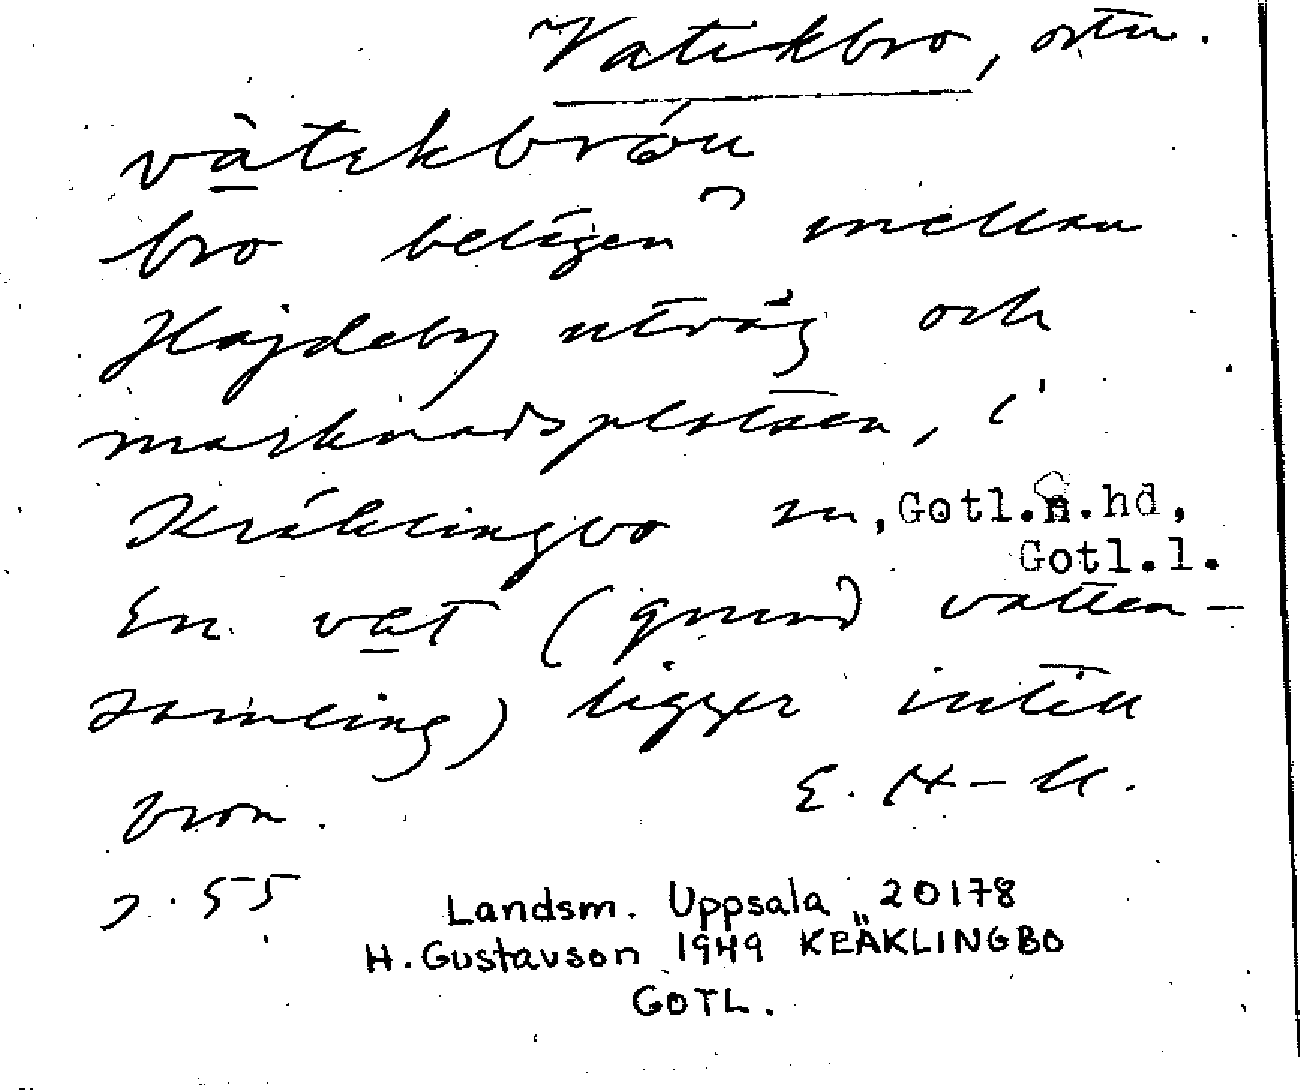 Vatekbro, ortn.
vàtekbróu
bro belägen mellan
Hajdeby utväg och
marknadsplatsen, i
Kräklingbo sn, Gotl.n.hd,
Gotl.l.
En vat (grund vatten-
samling) ligger intill
bron.
E. H-M.
s. 55
Landsm. Uppsala 20178
H. Gustavson 1949 KEÄKLINGBO
GOTL.